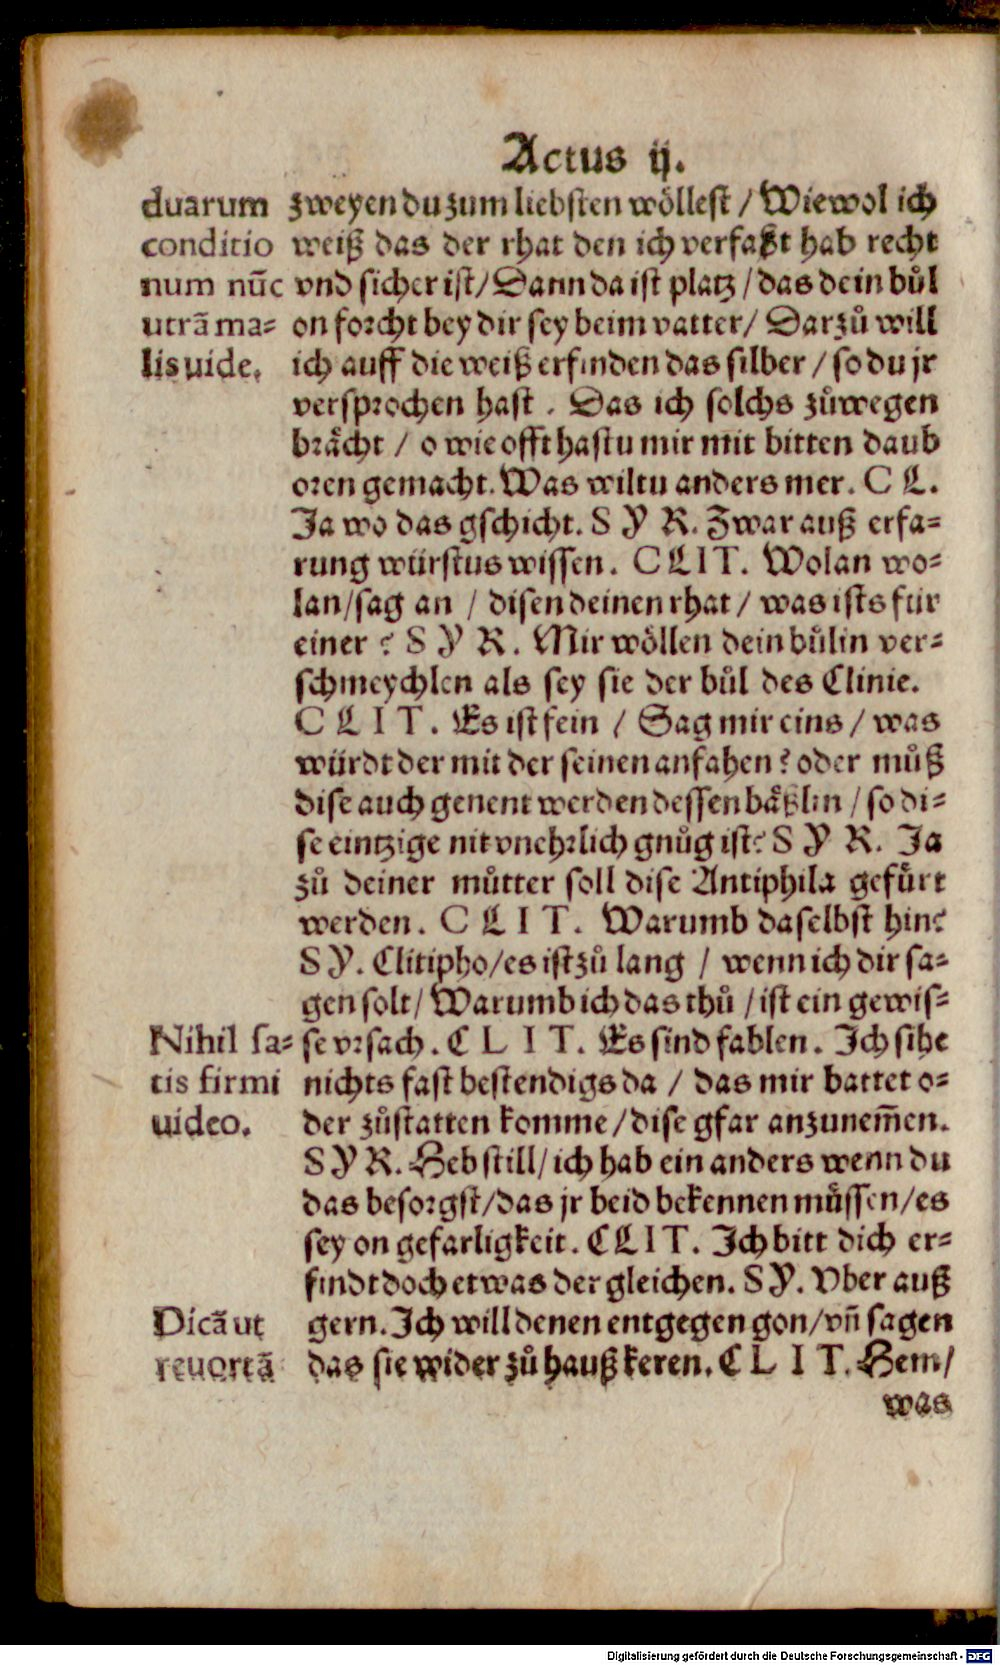 Actus ij.
duarum
conditio
num nūc
utrā ma=
lis uide.
zweyen du zum liebsten wöllest / Wiewol ich
weiß das der rhat den ich verfaßt hab recht
vnd sicher ist / Dann da ist platz / das dein bůl
on forcht bey dir sey beim vatter / Darzů will
ich auff die weiß erfinden das silber / so du jr
versprochen hast . Das ich solchs zůwegen
brächt / o wie offt hastu mir mit bitten daub
oren gemacht. Was wiltu anders mer. C L.
Ja wo das gschicht. S Y R. Zwar auß erfa=
rung würstus wissen. C L I T. Wolan wo=
lan / sag an / disen deinen rhat / was ists für
einer ? S Y R. Mir wöllen dein bůlin ver=
schmeychlen als sey sie der bůl des Clinie.
C L I T. Es ist fein / Sag mir eins / was
würdt der mit der seinen anfahen ? oder můß
dise auch genent werden dessen bäßlin / so di=
se eintzige nit vnehrlich gnůg ist? S Y R. Ja
zů deiner můtter soll dise Antiphila gefürt
werden. C L I T. Warumb daselbst hin?
S Y. Clitipho / es ist zů lang / wenn ich dir sa=
gen solt / Warumb ich das thů / ist ein gewis=
Nihil sa=
tis firmi
uideo.
se vrsach. C L I T. Es sind fablen. Ich sihe
nichts fast bestendigs da / das mir battet o=
der zůstatten komme / dise gfar anzunem̄en.
S Y R. Heb still / ich hab ein anders wenn du
das besorgst / das jr beid bekennen müssen / es
sey on gefarligkeit. C L I T. Ich bitt dich er=
findt doch etwas der gleichen. S Y. Vber auß
Dicā ut
reuortā
gern. Ich will denen entgegen gon / vn̄ sagen
das sie wider zů hauß keren. C L I T. Hem /
was
Digitalisierung gefördert durch die Deutsche Forschungsgemeinschaft - DFG